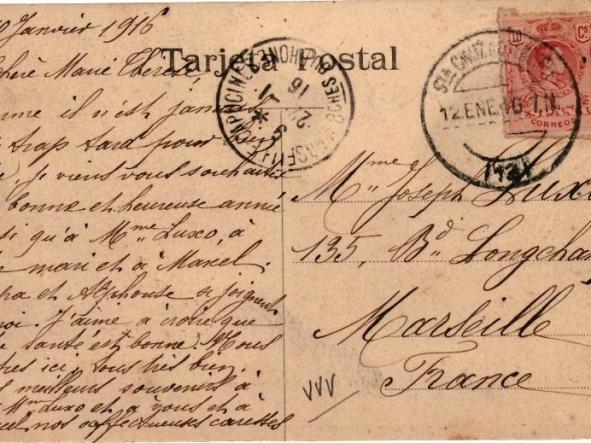 Janvier 1916
Tarjeta Postal
Chère Marie Thérèse
me il n'est jamais
trop tard pour
, je viens vous souhaiter
bonne et heureuse année
si qu'à Mme Luxo, à
mari et à Marcel.
et Alphonse se joignent
moi. J'aime à croire que
santé est bonne. Nous
ici, tous très bien.
meilleurs souvenirs à
Mme Luxo et à vous et à
nos affectueuses caresses
MARSEILLE CAPUCINES
BCHES DU RHONE
16
STA CRUZ
12.ENE.16
CORREOS
Mme
Mr Joseph Luxo
135, Bd Longchamp
Marseille
France